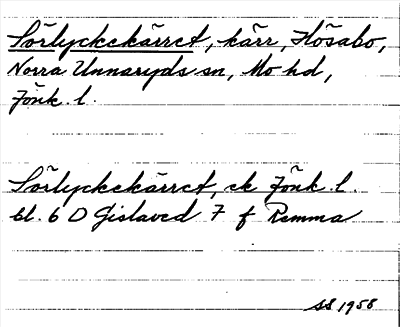 Sörlyckekärret, kärr, Hösabo,
Norra Unnaryds sn, Mo hd,
Jönk. l.
Sörlyckekärret, ek Jönk. l.
bl. 6 D Gislaved 7 f Remma
SS 1958